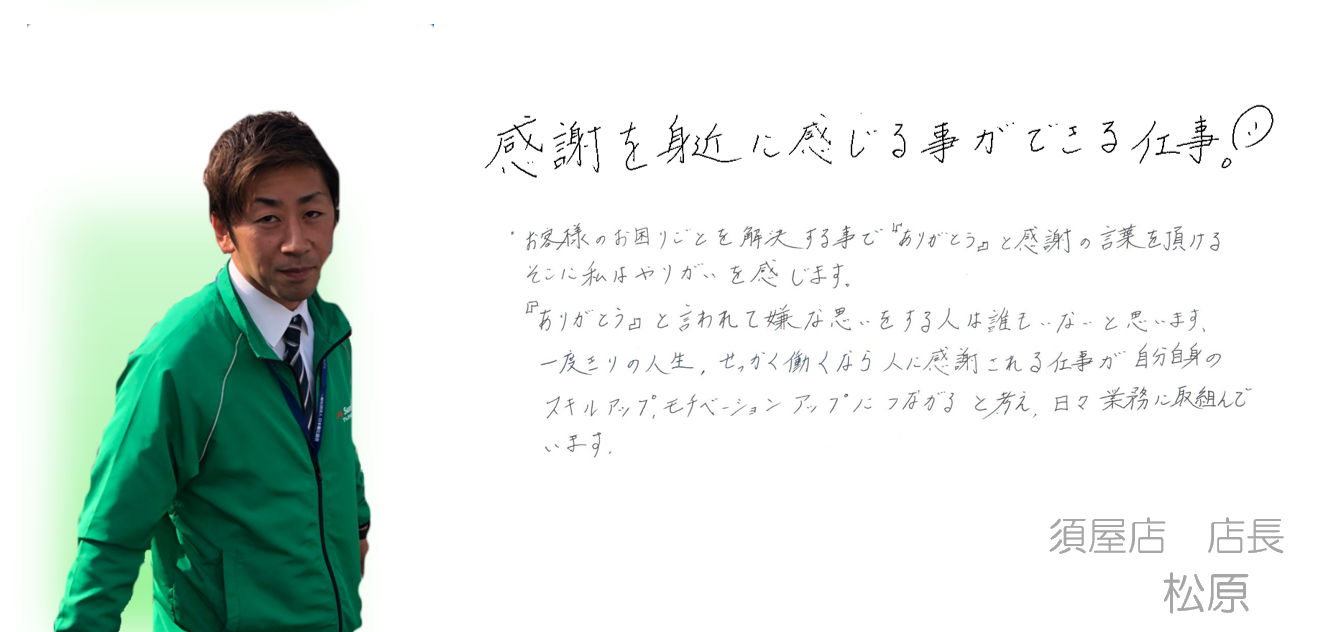 感謝を身近に感じる事ができる仕事。
・お客様のお困りごとを解決する事で『ありがとう』と感謝の言葉を頂ける
そこに私はやりがいを感じます。
『ありがとう』と言われて嫌な思いをする人は誰もいないと思います、
一度きりの人生、せっかく働くなら人に感謝される仕事が自分自身の
スキルアップ、モチベーションアップにつながると考え、日々業務に取組んで
います。
須屋店 店長
松原